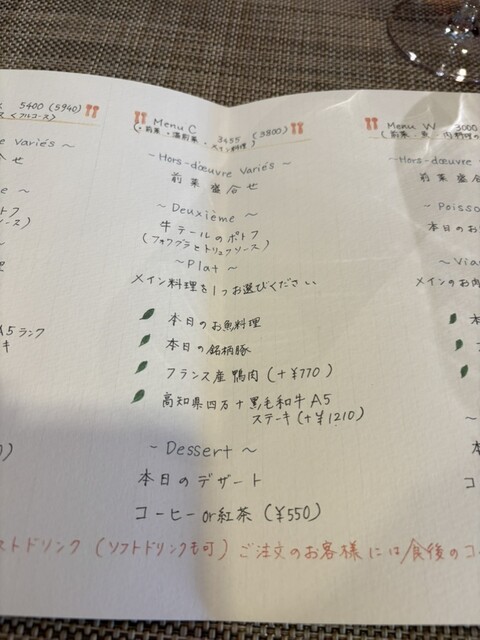 5400 (5940)
<フルコース>
Variés ~
Menu C 3455 (3800)
(・前菜・温前菜・メイン料理)
~ Hors-d'œuvre Variés ~
前菜盛合せ
~ Deuxième ~
牛テールのポトフ
(フォワグラとトリュフソース)
~ Plat ~
メイン料理を1つお選びください
本日のお魚料理
本日の銘柄豚
フランス産鴨肉 (+¥770)
高知県四万十黒毛和牛A5
ステーキ (+¥1210)
~ Dessert ~
本日のデザート
コーヒー or 紅茶 (¥550)
Menu W 3000
~ Hors-d'œuvre
前菜盛合せ
~ Poisso
本日のお
~ Via
メインのお肉
A5ランク
ストドリンク (ソフトドリンクも可) ご注文のお客様には食後のコ